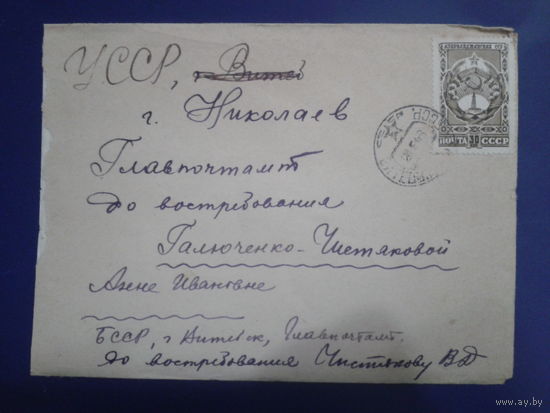 АЗЕРБАЙДЖАНСКАЯ ССР
ПОЧТА 30 СССР
УССР, Витеб
г. Николаев
Главпочтамт
до востребования
Галюченко-Чистяковой
Анне Ивановне
БССР, г Витебск, Главпочтамт.
до востребования Чистякову ВД
www.ay.by